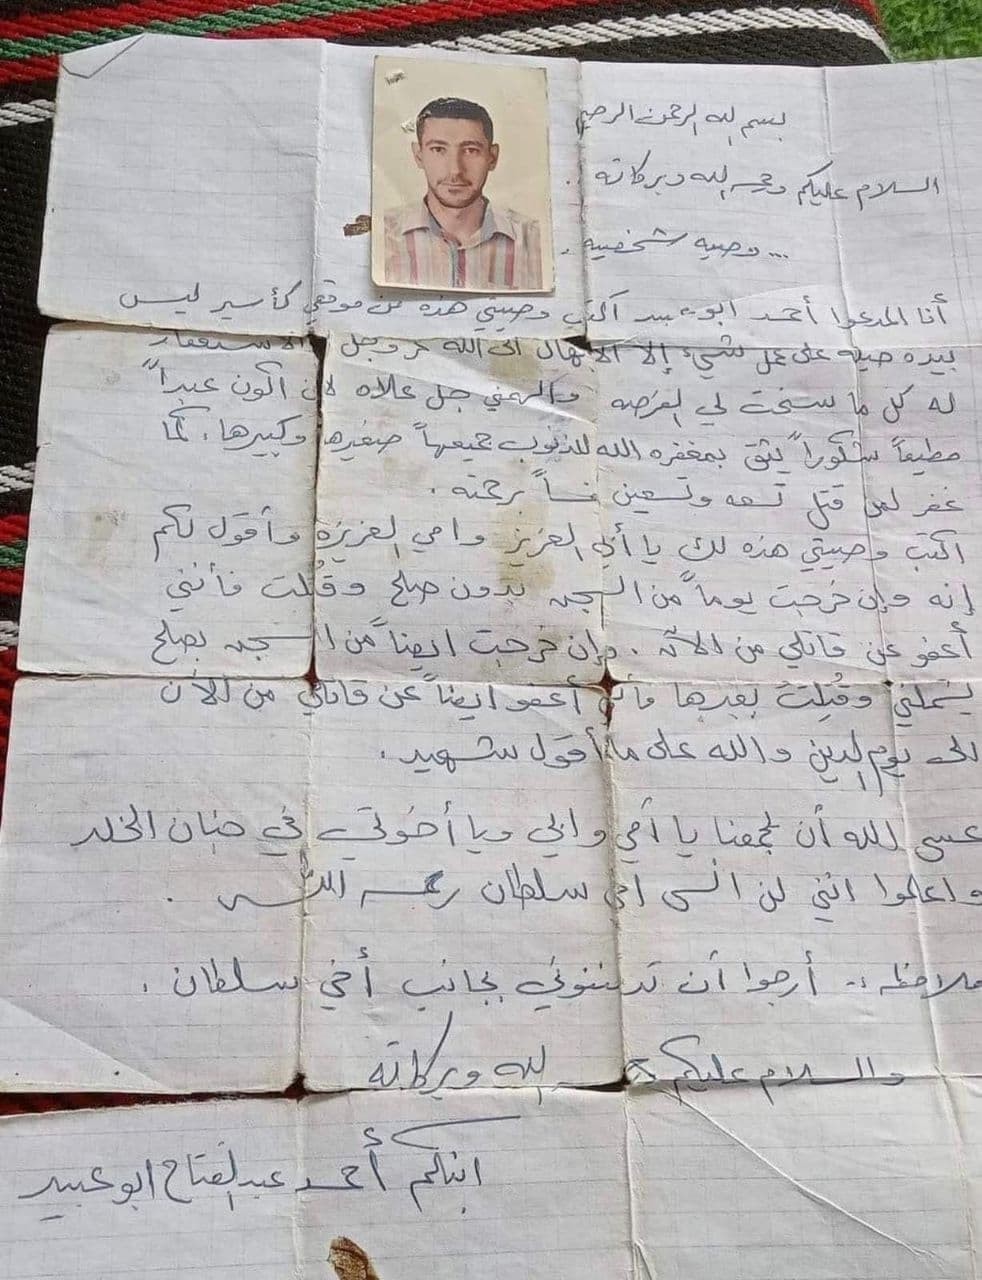 بسم الله الرحمن الرحيم
السلام عليكم ورحمة الله وبركاته .
... وصيه شخصيه .
أنا المدعوا أحمد ابو عبيد اكتب وصيتي هذه من موقعي كأسير ليس
بيده حيله على عمل شيء إلا الابتهال الى الله عز وجل والاستغفار
له كل ما سنحت لي الفرصه والهمني جل علاه لأن اكون عبداً
مطيعاً شكوراً يثق بمغفره الله للذنوب جميعهاً صغيرها وكبيرها، كما
غفر لمن قتل تسعه وتسعين نفساً برحمته .
اكتب وصيتي هذه لك يا أبي العزيز وامي العزيزة وأقول لكم
إنه وإن خرجت يوماً من السجن بدون صلح وقُتلت فأنني
أعفو عن قاتلي من الآن . وإن خرجت ايضاً من السجن بصلح
يشملني وقُتلتُ بعدها فأني أعفو ايضاً عن قاتلي من الأن
الى يوم الدين والله على ما أقول شهيد .
عسى الله أن يجمعنا يا أمي وابي ويا أخوتي في جنان الخلد
واعلموا انني لن انسى اخي سلطان رحمه الله .
ملاحظه :- أرجوا أن تدفنوني بجانب أخي سلطان .
والسلام عليكم ورحمة الله وبركاته
ابنكم أحمد عبد الفتاح ابو عبيد